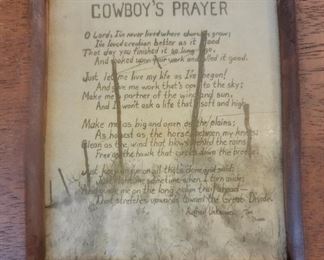 COWBOY'S PRAYER
O Lord, I've never lived where churches grow;
I've loved creation better as it stood
That day you finished it so long ago,
And looked upon your work and called it good.
Just let me live my life as I've began!
And give me work that's open to the sky;
Make me a partner of the wind and sun,
And I won't ask a life that's soft and high.
Make me as big and open as the plains;
As honest as the horse between my knees;
Clean as the wind that blows behind the rains;
Free as the hawk that circles down the breeze.
Just keep an eye on all that's done and said;
Just right me sometime when I turn aside;
And guide me on the long, dim trail ahead—
That stretches upwards toward the Great Divide.
Author Unknown